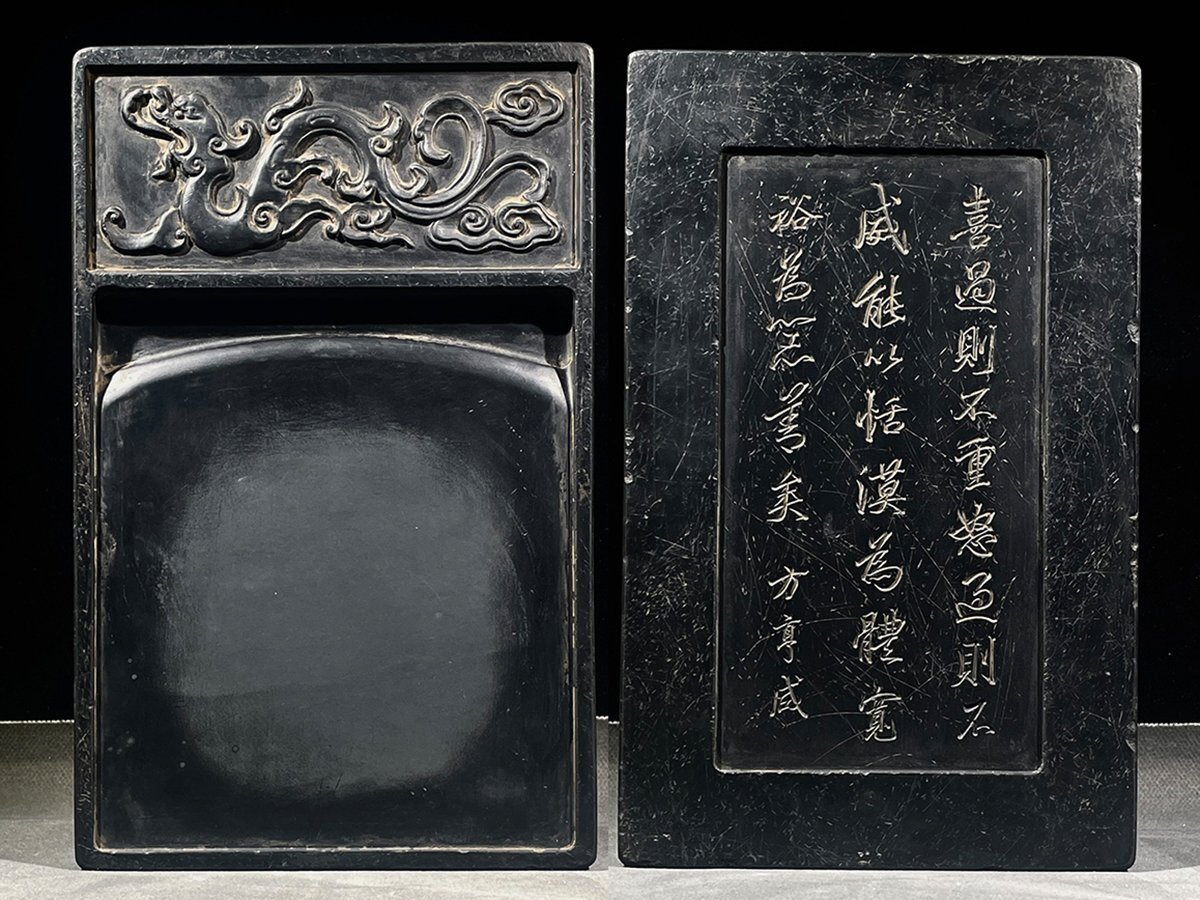 喜過則不重怒過則不
威能以恬漠為體寬
裕為器善矣 方亨咸